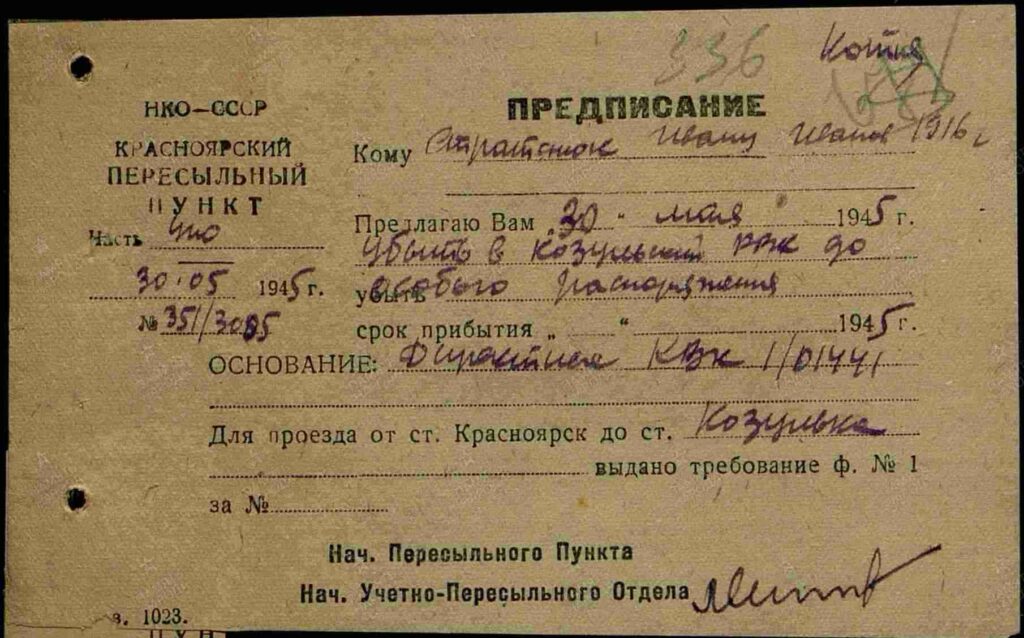 336 Копия
НКО—СССР
КРАСНОЯРСКИЙ
ПЕРЕСЫЛЬНЫЙ
ПУНКТ
Часть
30.05 1945 г.
№ 351/3085
ПРЕДПИСАНИЕ
Кому Ивану Иванов 1916 г
Предлагаю Вам „30“ мая 1945 г.
убыть в Козульский РВК до
убыть особого распоряжения
срок прибытия „ “ 1945 г.
ОСНОВАНИЕ: Директива КВК 1/01441
Для проезда от ст. Красноярск до ст. Козулька
выдано требование ф. № 1
за №
Нач. Пересыльного Пункта
Нач. Учетно-Пересыльного Отдела
з. 1023.